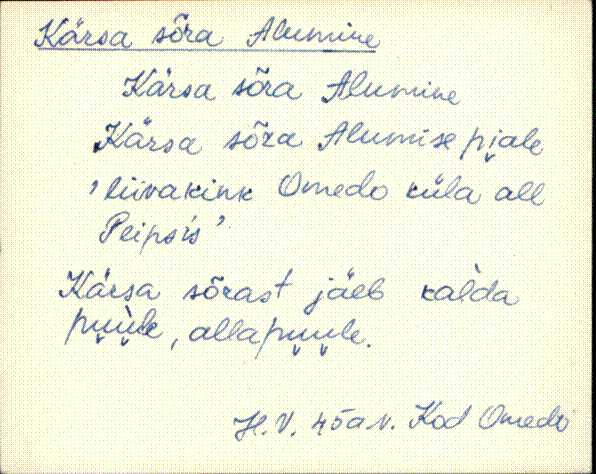 Kärsa sõra Alumine
Kärsa sõra Alumine
Kärsa sõra Alumise pi̮ale
'liivakink Omedo küla all
Peipsis'
Kärsa sõrast jäeb kalda
pu̮ùle, allapu̮u̮le.
H.V. 45 a.v. Kod Omedo